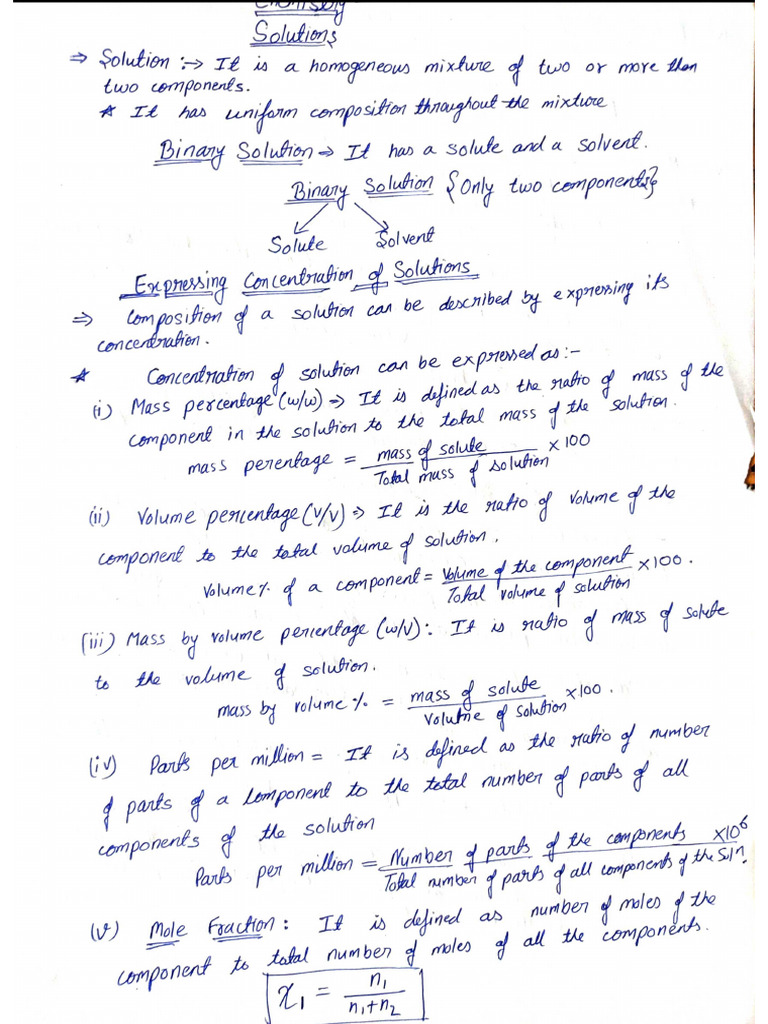 Chemistry
Solutions
⇒ Solution :→ It is a homogeneous mixture of two or more than
two components.
* It has uniform composition throughout the mixture
Binary Solution ⇒ It has a solute and a solvent.
Binary Solution {Only two components}
Solute Solvent
Expressing Concentration of Solutions
⇒ Composition of a solution can be described by expressing its
concentration.
* Concentration of solution can be expressed as:-
(i) Mass percentage (w/w) ⇒ It is defined as the ratio of mass of the
component in the solution to the total mass of the solution.
mass perentage = mass of solute / Total mass of solution × 100
(ii) Volume percentage (V/V) ⇒ It is the ratio of volume of the
component to the total volume of solution.
Volume % of a component = Volume of the component / Total volume of solution × 100.
(iii) Mass by volume percentage (w/v): It is ratio of mass of solute
to the volume of solution.
mass by volume % = mass of solute / Volume of solution × 100.
(iv) Parts per million = It is defined as the ratio of number
of parts of a component to the total number of parts of all
components of the solution
Parts per million = Number of parts of the components / Total number of parts of all components of the Soln. × 10⁶
(v) Mole Fraction: It is defined as number of moles of the
component to total number of moles of all the components.
χ₁ = n₁ / n₁+n₂